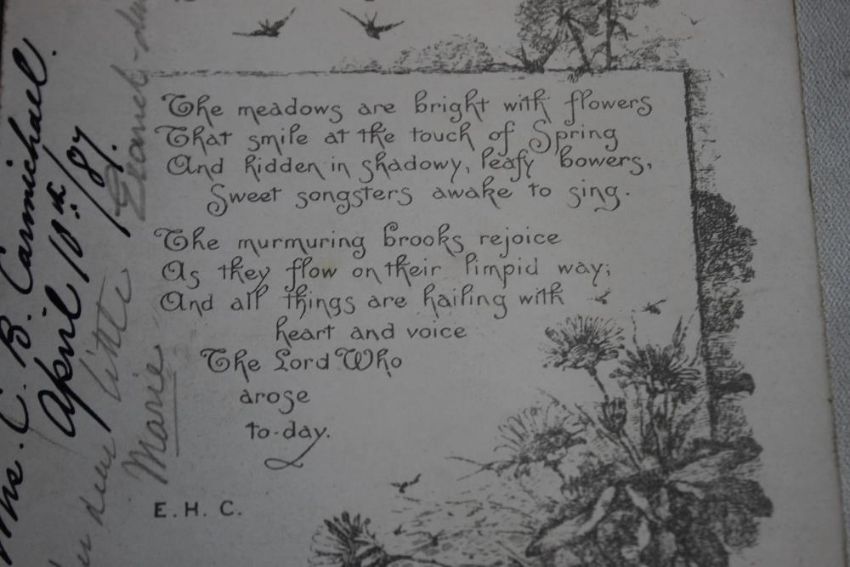 The meadows are bright with flowers
That smile at the touch of Spring
And hidden in shadowy, leafy bowers,
Sweet songsters awake to sing.
The murmuring brooks rejoice
As they flow on their limpid way;
And all things are hailing with
heart and voice
The Lord Who
arose
to-day.
E. H. C.
Mrs. C. B. Carmichael.
April 10th/87.
dear little
Marie